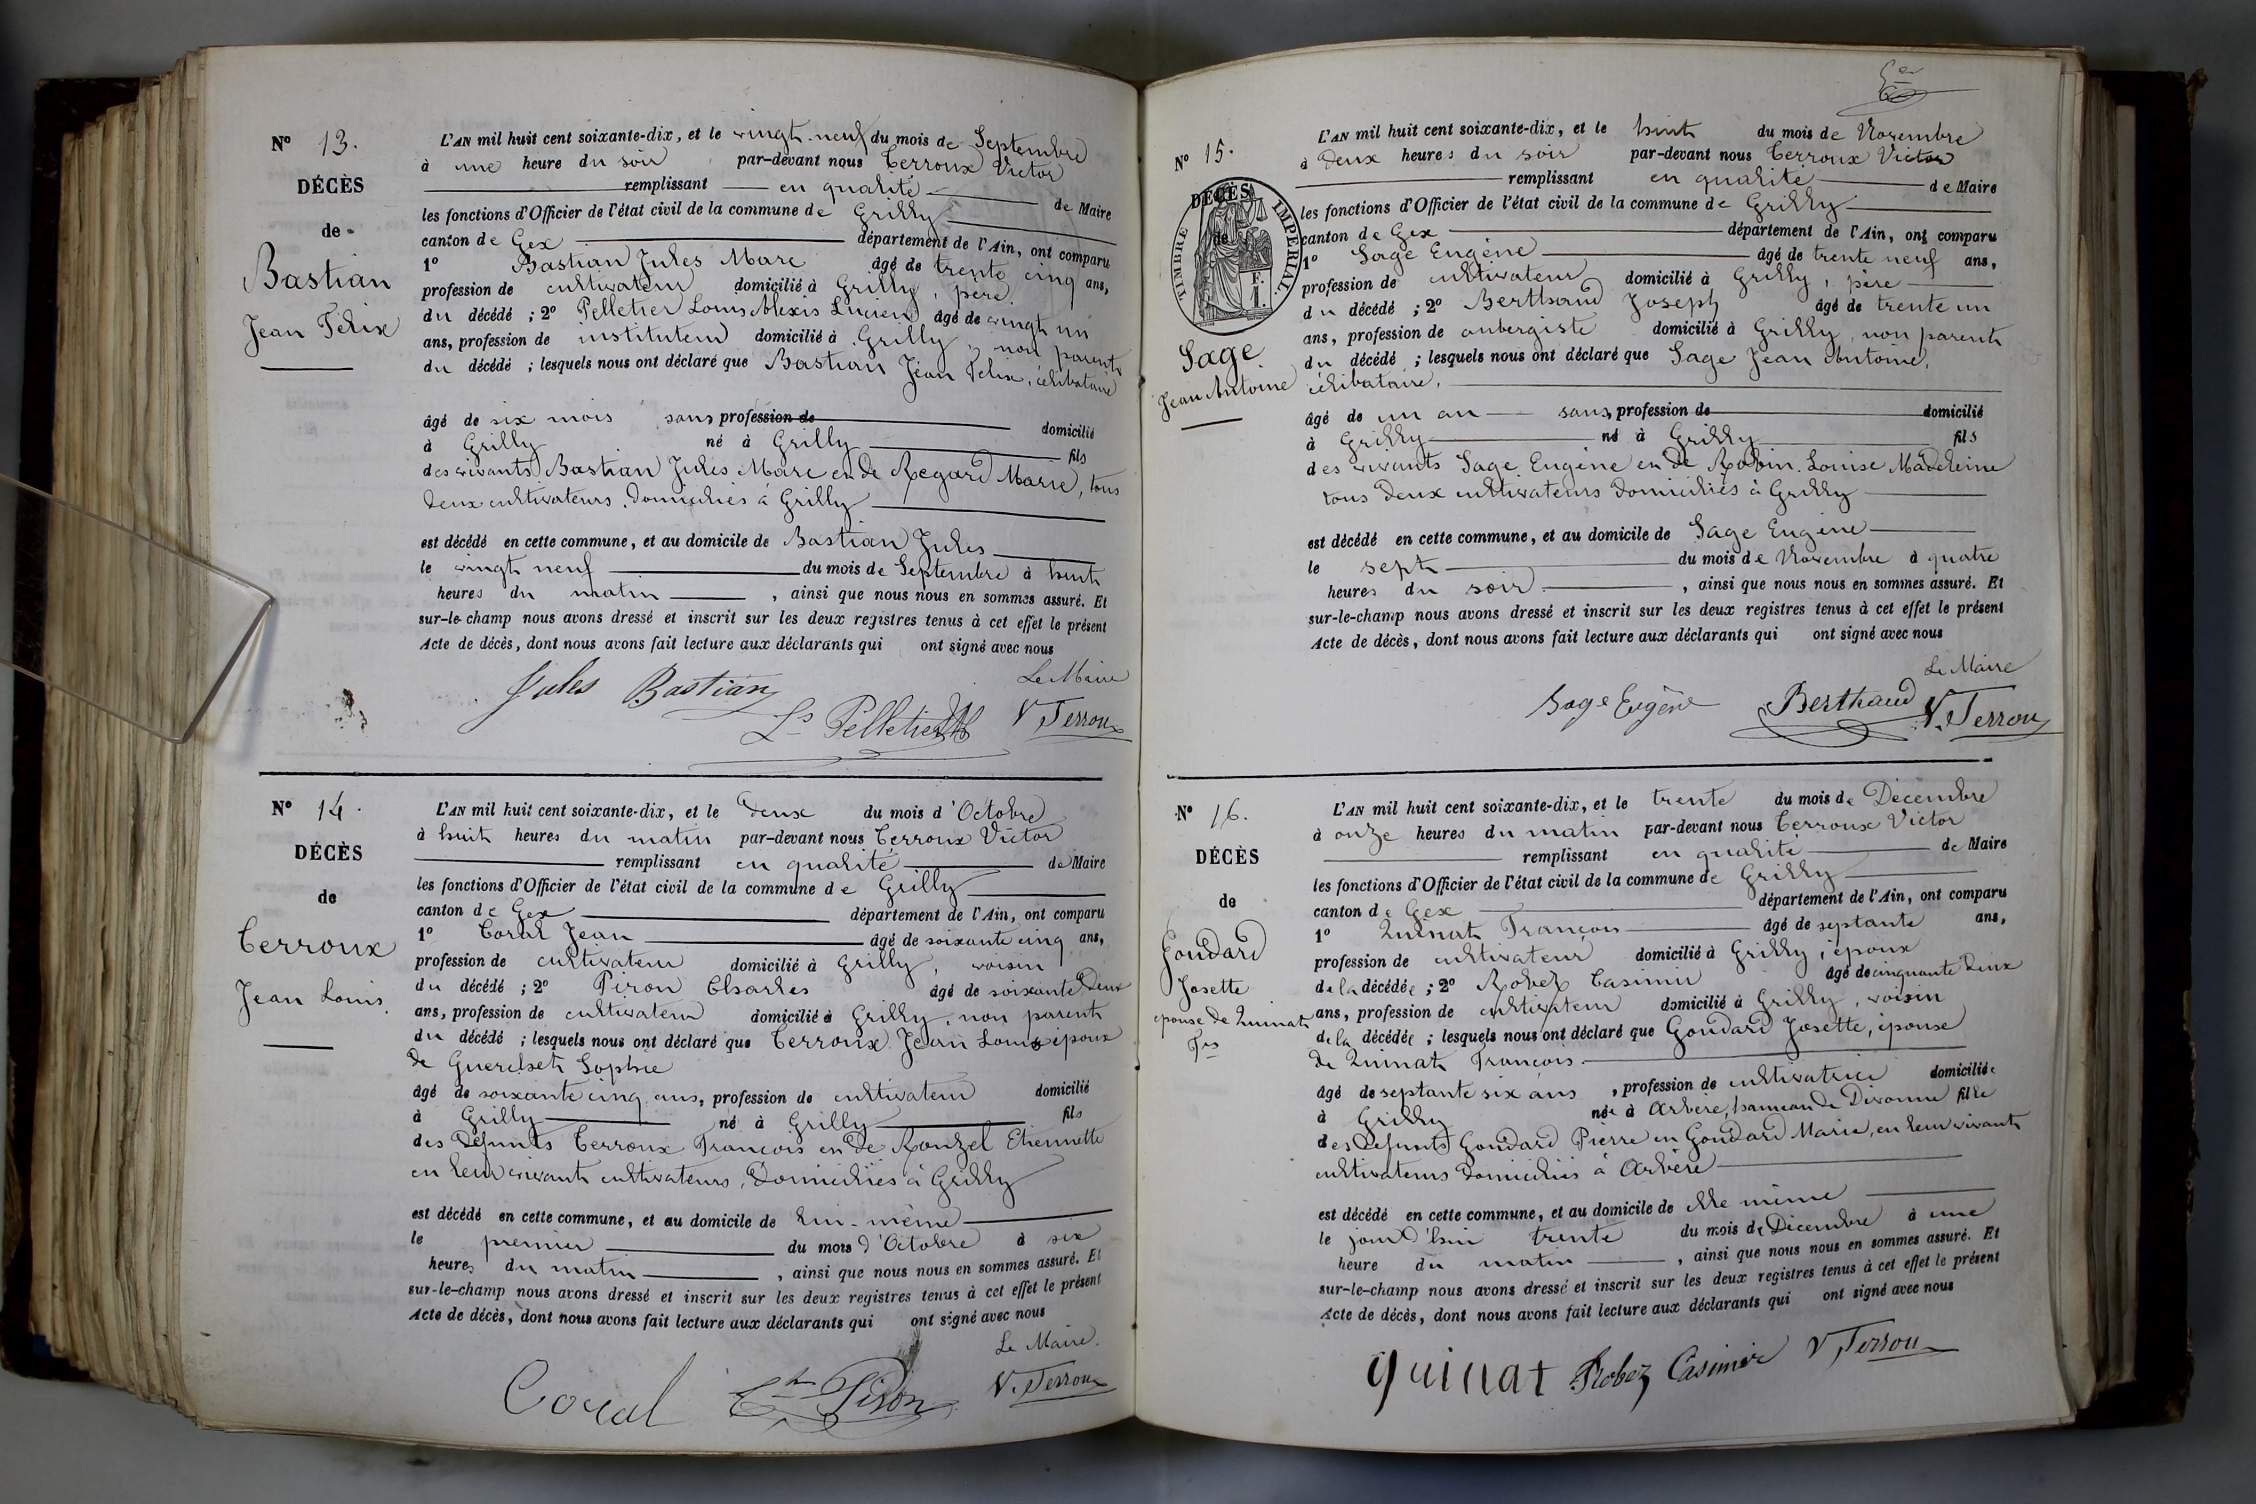 N° 13.
DÉCÈS
de
Bastian
Jean Félix
L'AN mil huit cent soixante-dix, et le vingt-neuf du mois de Septembre
à une heure du soir par-devant nous Terroux Victor
remplissant en qualité de Maire
les fonctions d'Officier de l'état civil de la commune de Grilly
canton de Gex département de l'Ain, ont comparu
1° Bastian Jules Marc âgé de trente cinq ans,
profession de cultivateur domicilié à Grilly, père
du décédé ; 2° Pelletier Louis Alexis Lucien âgé de vingt un
ans, profession de instituteur domicilié à Grilly, non parent
du décédé ; lesquels nous ont déclaré que Bastian Jean Felix, célibataire
âgé de six mois sans profession de domicilié
à Grilly né à Grilly fils
des vivants Bastian Jules Marc et de Regard Marie, tous
deux cultivateurs, domiciliés à Grilly
est décédé en cette commune, et au domicile de Bastian Jules
le vingt neuf du mois de Septembre à huit
heures du matin, ainsi que nous nous en sommes assuré. Et
sur-le-champ nous avons dressé et inscrit sur les deux registres tenus à cet effet le présent
Acte de décès, dont nous avons fait lecture aux déclarants qui ont signé avec nous
Le Maire
Jules Bastian
Ls Pelletier V. Terroux
N° 14.
DÉCÈS
de
Terroux
Jean Louis.
L'AN mil huit cent soixante-dix, et le deux du mois d'Octobre
à huit heures du matin par-devant nous Terroux Victor
remplissant en qualité de Maire
les fonctions d'Officier de l'état civil de la commune de Grilly
canton de Gex département de l'Ain, ont comparu
1° Coral Jean âgé de soixante cinq ans,
profession de cultivateur domicilié à Grilly, voisin
du décédé ; 2° Piron Charles âgé de soixante deux
ans, profession de cultivateur domicilié à Grilly, non parent
du décédé ; lesquels nous ont déclaré que Terroux Jean Louis époux
de Guerchet Sophie
âgé de soixante cinq ans, profession de cultivateur domicilié
à Grilly né à Grilly fils
des défunts Terroux François et de Rouzel Etiennette
en leur vivant cultivateurs, domiciliés à Grilly
est décédé en cette commune, et au domicile de lui-même
le premier du mois d'Octobre à six
heures du matin, ainsi que nous nous en sommes assuré. Et
sur-le-champ nous avons dressé et inscrit sur les deux registres tenus à cet effet le présent
Acte de décès, dont nous avons fait lecture aux déclarants qui ont signé avec nous
Le Maire.
Coral Ch Piron V. Terroux
N° 15.
DÉCÈS
de
TIMBRE IMPERIAL.
F.
1.
Sage
Jean Antoine
L'AN mil huit cent soixante-dix, et le huit du mois de Novembre
à deux heures du soir par-devant nous Terroux Victor
remplissant en qualité de Maire
les fonctions d'Officier de l'état civil de la commune de Grilly
canton de Gex département de l'Ain, ont comparu
1° Sage Eugène âgé de trente neuf ans,
profession de cultivateur domicilié à Grilly, père
du décédé ; 2° Berthaud Joseph âgé de trente un
ans, profession de aubergiste domicilié à Grilly, non parent
du décédé ; lesquels nous ont déclaré que Sage Jean Antoine,
célibataire,
âgé de un an sans, profession de domicilié
à Grilly né à Grilly fils
des vivants Sage Eugène et de Robin Louise Madeleine
tous deux cultivateurs domiciliés à Grilly
est décédé en cette commune, et au domicile de Sage Eugène
le sept du mois de Novembre à quatre
heures du soir, ainsi que nous nous en sommes assuré. Et
sur-le-champ nous avons dressé et inscrit sur les deux registres tenus à cet effet le présent
Acte de décès, dont nous avons fait lecture aux déclarants qui ont signé avec nous
Le Maire
Sage Eugène Berthaud V. Terroux
N° 16.
DÉCÈS
de
Goudard
Josette
épouse de Quinat
Fçs
L'AN mil huit cent soixante-dix, et le trente du mois de Décembre
à onze heures du matin par-devant nous Terroux Victor
remplissant en qualité de Maire
les fonctions d'Officier de l'état civil de la commune de Grilly
canton de Gex département de l'Ain, ont comparu
1° Quinat François âgé de septante ans,
profession de cultivateur domicilié à Grilly, époux
de la décédée ; 2° Robez Casimir âgé de cinquante deux
ans, profession de cultivateur domicilié à Grilly, voisin
de la décédée ; lesquels nous ont déclaré que Goudard Josette, épouse
de Quinat François
âgé de septante six ans, profession de cultivatrice domiciliée
à Grilly née à Arbère, hameau de Divonne fille
des défunts Goudard Pierre et Goudard Marie, en leur vivant
cultivateurs domiciliés à Arbère
est décédé en cette commune, et au domicile de elle même
le jourd'hui trente du mois de Décembre à une
heure du matin, ainsi que nous nous en sommes assuré. Et
sur-le-champ nous avons dressé et inscrit sur les deux registres tenus à cet effet le présent
Acte de décès, dont nous avons fait lecture aux déclarants qui ont signé avec nous
quinat Robez Casimir V. Terroux